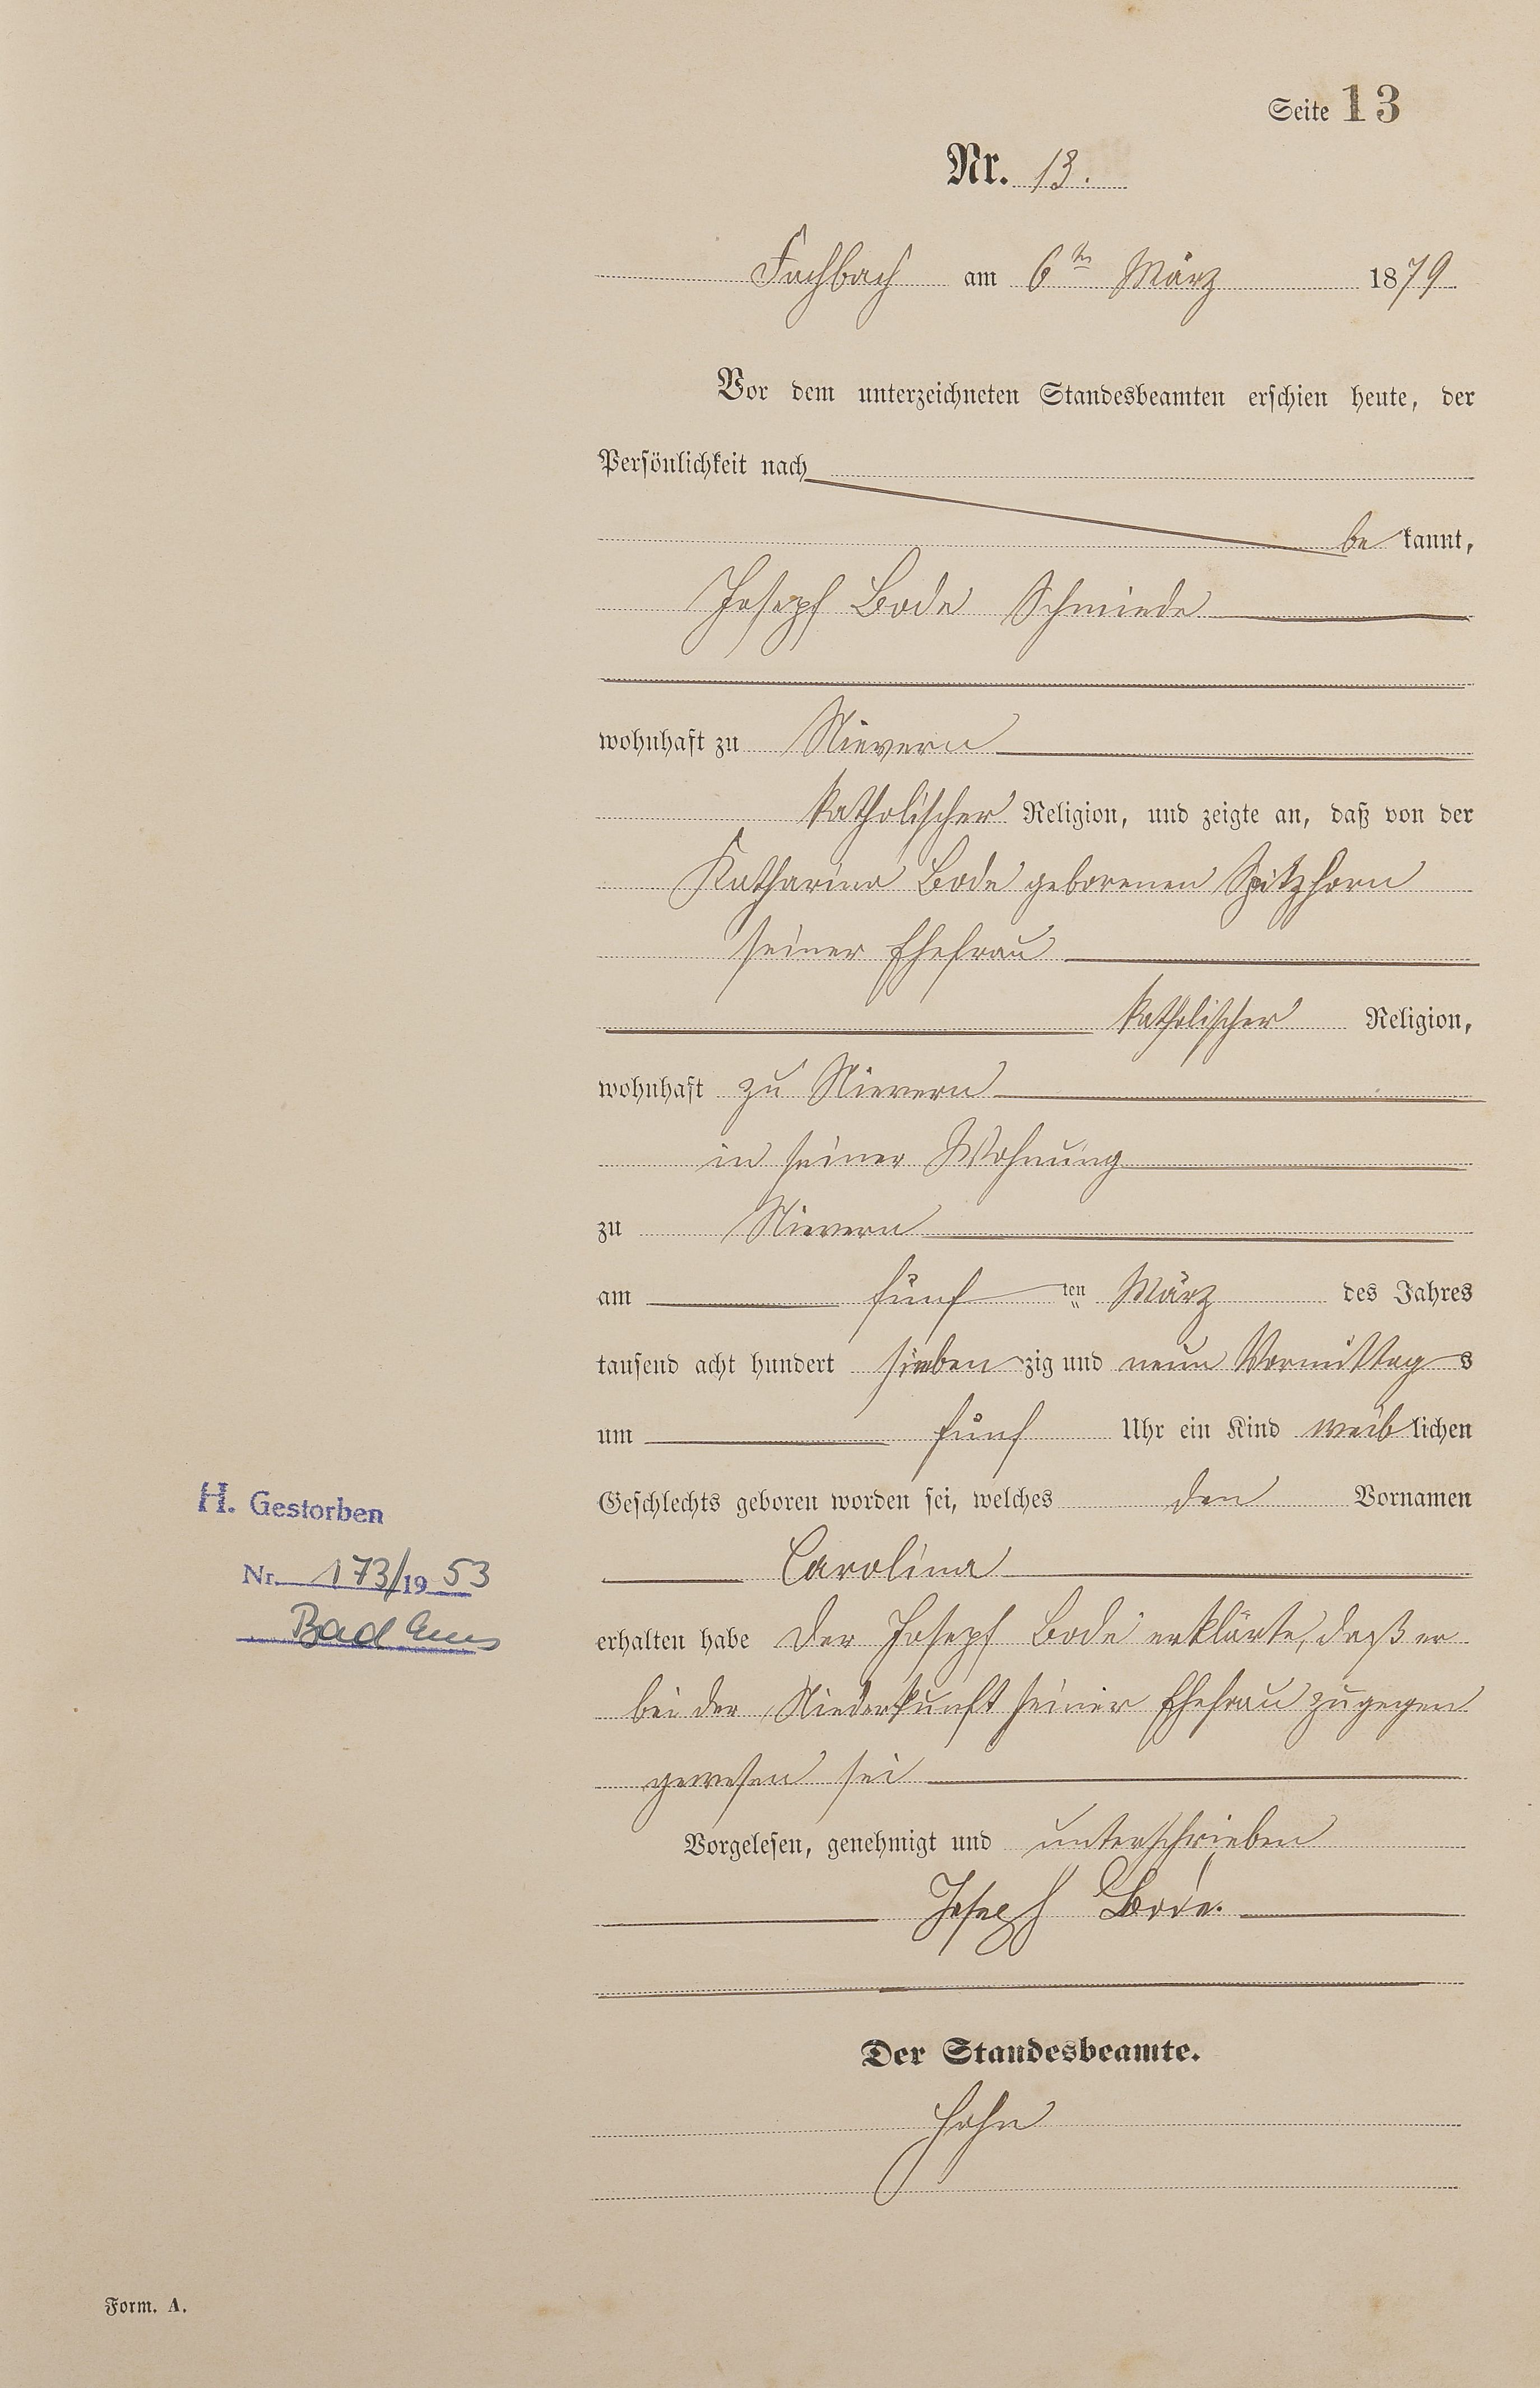 Seite 13
Nr. 13.
Fachbach am 6ten März 1879
Vor dem unterzeichneten Standesbeamten erschien heute, der
Persönlichkeit nach
be kannt,
Joseph Bode Schmiede
wohnhaft zu Nievern
katholischer Religion, und zeigte an, daß von der
Katharina Bode geborenen Spitzhorn
seiner Ehefrau
katholischer Religion,
wohnhaft zu Nievern
in seiner Wohnung
zu Nievern
am fünf ten März des Jahres
tausend acht hundert sieben zig und neun Vormittag s
um fünf Uhr ein Kind weib lichen
Geschlechts geboren worden sei, welches den Vornamen
Carolina
erhalten habe Der Joseph Bode erklärte, daß er
bei der Niederkunft seiner Ehefrau zugegen
gewesen sei
Vorgelesen, genehmigt und unterschrieben
Joseph Bode.
Der Standesbeamte.
Hohn
H. Gestorben
Nr. 173/1953
Bad Ems
Form. A.